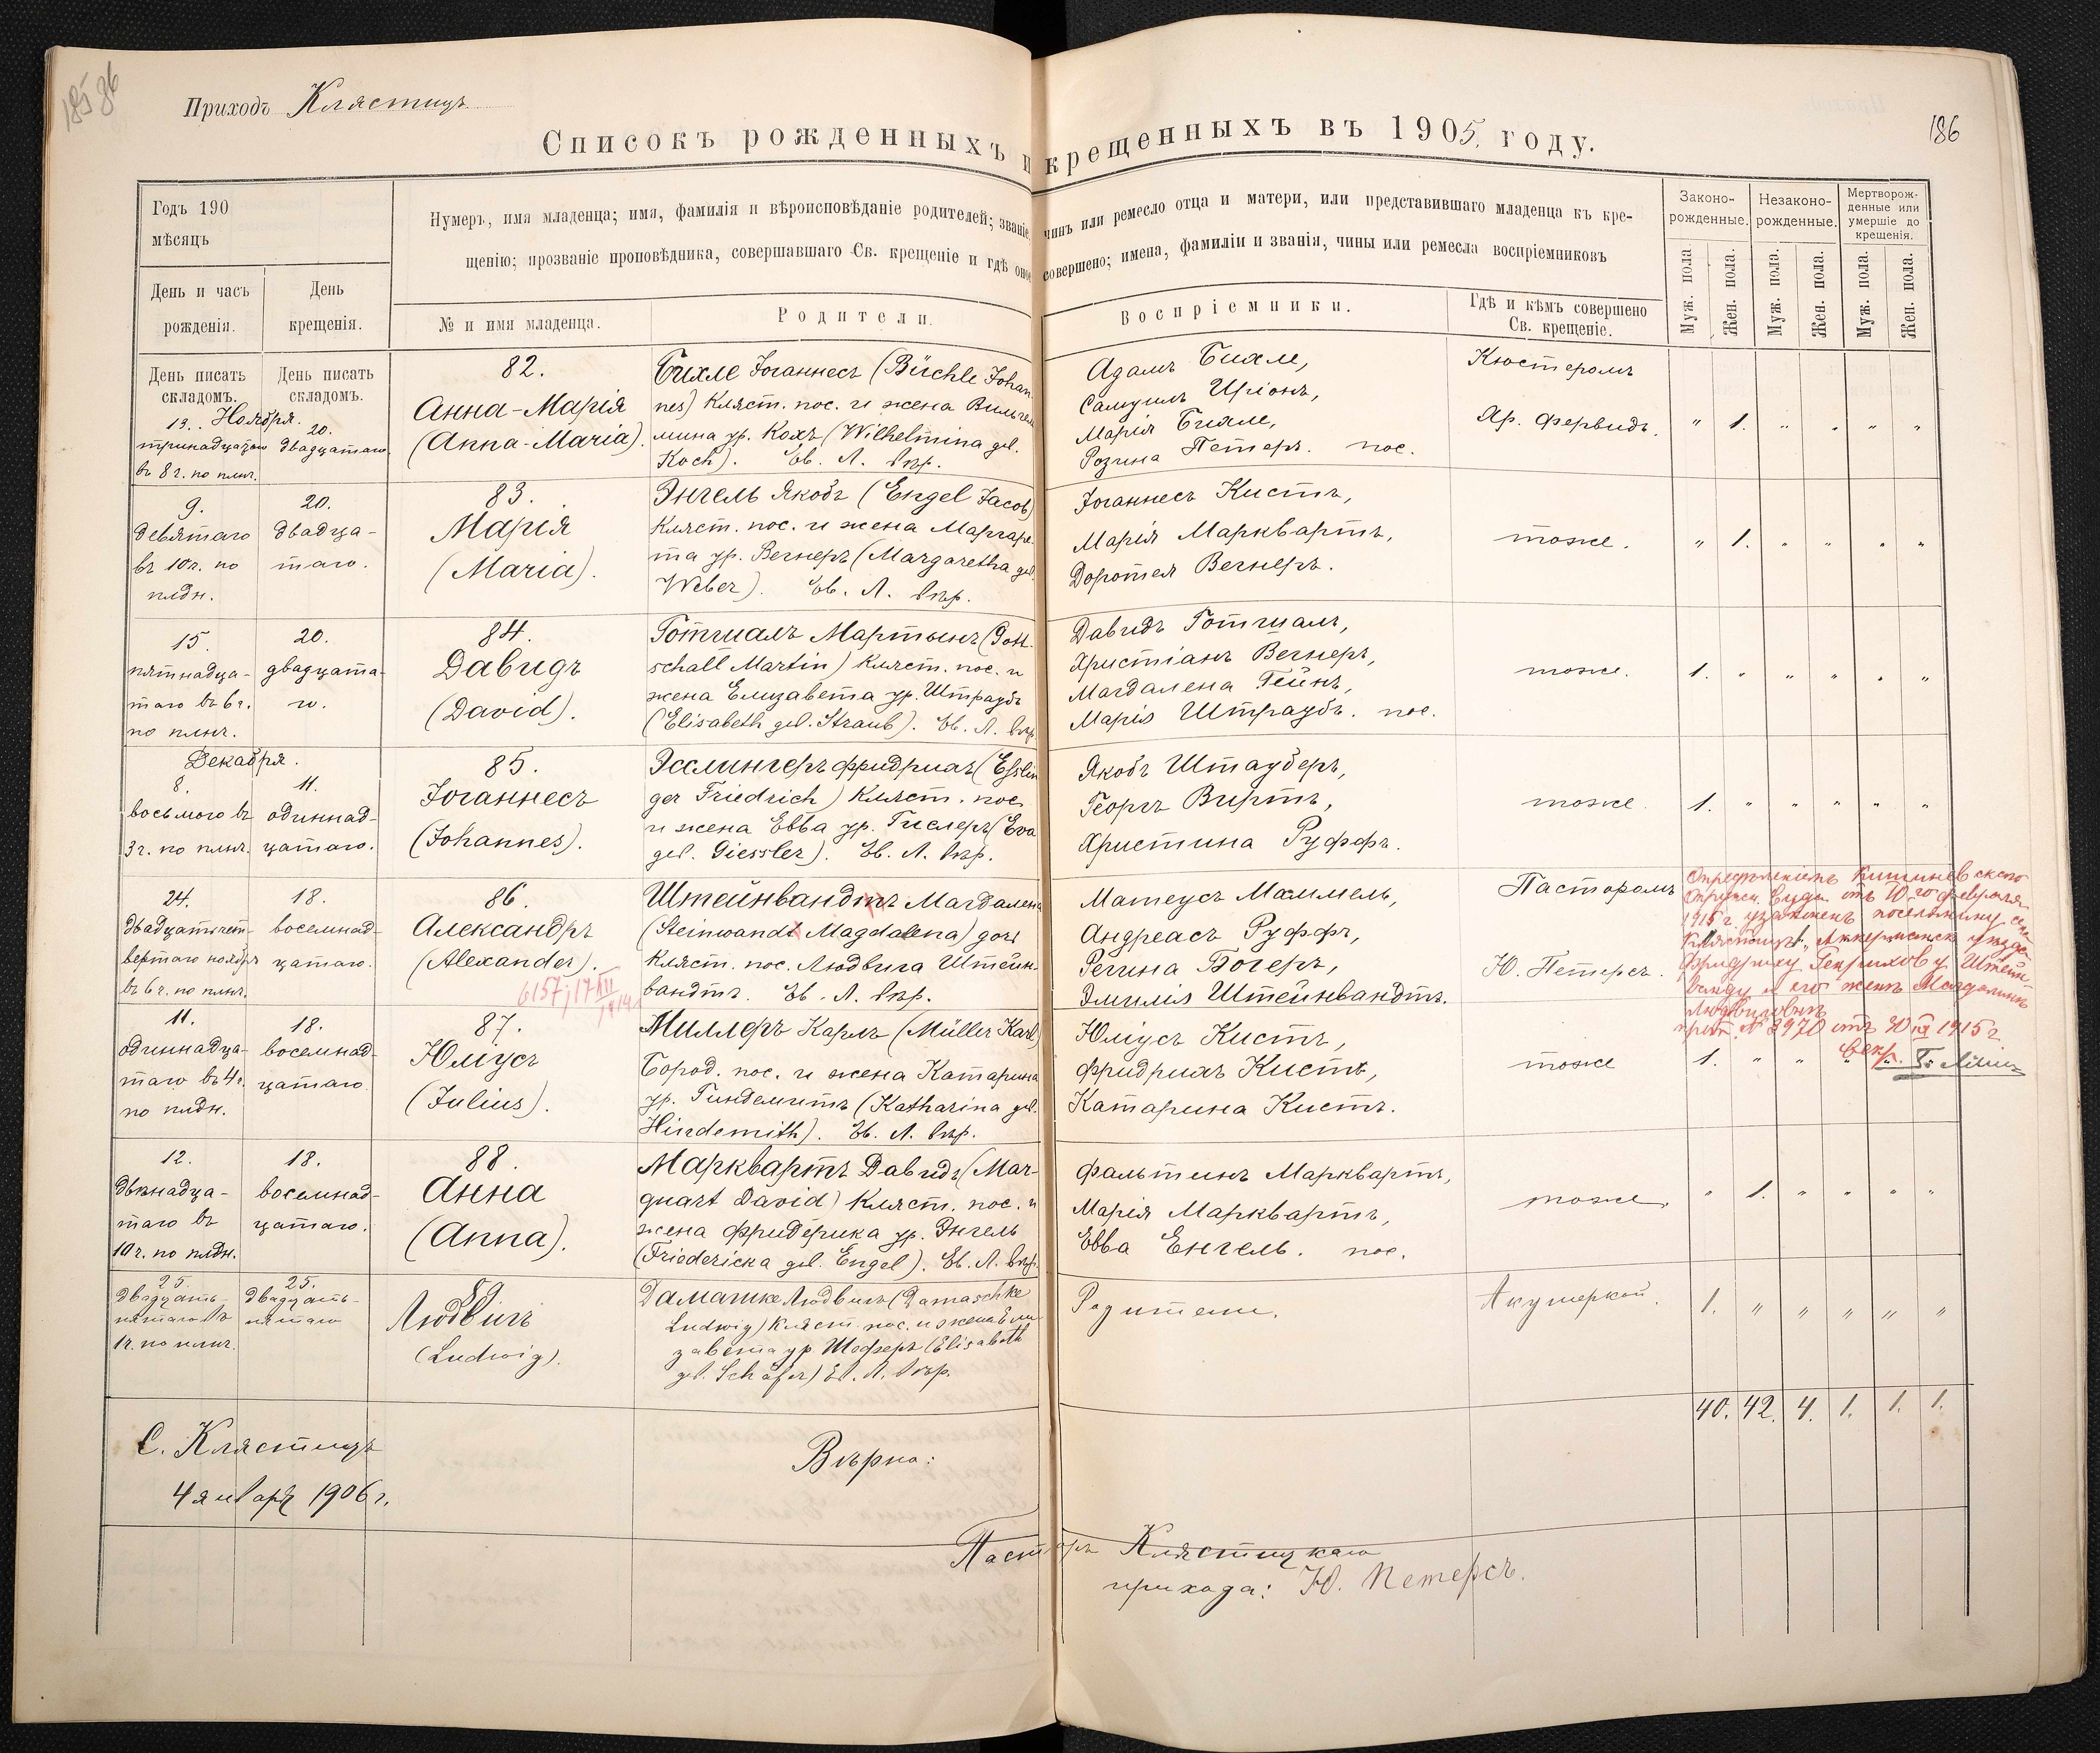 185 86
Приходъ Клястицъ
186
Списокъ рожденныхъ и крещенныхъ въ 1905. году.
Годъ 190
мѣсяцъ
День и часъ рожденія.
День крещенія.
Нумеръ, имя младенца; имя, фамилія и вѣроисповѣданіе родителей; званіе, чинъ или ремесло отца и матери, или представившаго младенца къ кре-
щенію; прозваніе проповѣдника, совершавшаго Св. крещеніе и гдѣ оное совершено; имена, фамиліи и званія, чины или ремесла воспріемниковъ
№ и имя младенца.
Родители.
Воспріемники.
Гдѣ и кѣмъ совершено
Св. крещеніе.
Законо-
рожденные.
Незаконо-
рожденные.
Мертворож-
денные или
умершіе до
крещенія.
Муж. пола
Жен. пола.
Муж. пола.
Жен. пола.
Муж. пола.
Жен. пола.
День писать
складомъ.
День писать
складомъ.
Ноября.
13.
тринадцатаго
въ 8 г. по плнч.
20.
двадцатаго.
82.
Анна-Марія
(Anna-Maria).
Бихле Іоганнесъ (Büchle Johan
nes) Кляст. пос. и жена Вильгель
мина ур. Кохъ (Wilhelmina gel.
Koch). Ев. Л. вѣр.
Адамъ Бихле,
Самуилъ Иріонъ,
Марія Бихле,
Розина Петеръ. пос.
Кюстеромъ
Яр. Фервидъ.
" 1. " " " "
9.
девятаго
въ 10 г. по
плдн.
20.
двадца-
таго.
83.
Марія
(Maria).
Энгель Якобъ (Engel Jacob)
Кляст. пос. и жена Маргаре
та ур. Вегнеръ (Margaretha gel.
Weber). Ев. Л. вѣр.
Іоганнесъ Кистъ,
Марія Марквартъ,
Доротея Вегнеръ.
тоже.
" 1. " " " "
15.
пятнадца-
таго въ 6 г.
по плнч.
20.
двадцата-
го.
84.
Давидъ
(David).
Готшалъ Мартынъ (Gott-
schall Martin) Кляст. пос. и
жена Елизавета ур. Штраубъ
(Elisabeth gel. Straub). Ев. Л. вѣр.
Давидъ Готшалъ,
Христіанъ Вегнеръ,
Магдалена Гейнъ,
Марія Штраубъ. пос.
тоже.
1. " " " " "
Декабря.
8.
восьмого въ
3 г. по плнч.
11.
одиннад-
цатаго.
85.
Іоганнесъ
(Johannes).
Эсслингеръ Фридрихъ (Esslin
ger Friedrich) Кляст. пос.
и жена Евва ур. Гислеръ (Eva
gel. Giessler). Ев. Л. вѣр.
Якобъ Штауберъ,
Георгъ Виртъ,
Христина Руффъ.
тоже.
1. " " " " "
24.
двадцатьчет-
вертаго ноября
въ 6 г. по плнч.
18.
восемнад-
цатаго.
86.
Александръ
(Alexander).
6157; 17 XII 1914
Штейнвандтъ Магдалена
(Steinwandt Magdalena) дочь
Кляст. пос. Людвига Штейн-
вандтъ. Ев. Л. вѣр.
Матеусъ Маммель,
Андреасъ Руффъ,
Регина Богеръ,
Эмилія Штейнвандтъ.
Пасторомъ
Ю. Петерсъ.
Опредѣленіемъ Кишиневского
Окружн. Суда отъ 10го февраля
1915 г. узаконенъ поселянину сел.
Клястицъ, Аккерманск. уѣзда
Фридриху Генрихову Штейн-
ванду и его женѣ Магдалинѣ
Людвиговнѣ
11.
одиннадца-
таго въ 4 г.
по плдн.
18.
восемнад-
цатаго.
87.
Юліусъ
(Julius).
Миллеръ Карлъ (Müller Karl)
Бород. пос. и жена Катарина
ур. Гиндемитъ (Katharina gel.
Hindemith). Ев. Л. вѣр.
Юліусъ Кистъ,
Фридрихъ Кистъ,
Катарина Кистъ.
тоже
1. " " " "
12.
двѣнадца-
таго въ
10 г. по плдн.
18.
восемнад-
цатаго.
88.
Анна
(Anna).
Марквартъ Давидъ (Mar-
quart David) Кляст. пос. и
жена Фридерика ур. Энгель
(Friedericka gel. Engel). Ев. Л. вѣр.
Фальтинъ Марквартъ,
Марія Марквартъ,
Евва Енгель. пос.
тоже.
" 1. " " " "
25.
двадцать-
пятаго въ
1 г. по плнч.
25.
двадцать-
пятаго
89
Людвигъ
(Ludwig).
Дамашке Людвигъ (Damaschke
Ludwig) Кляст. пос. и жена Ели
завета ур. Шеферъ (Elisabeth
gel. Schäfer) Ев. Л. вѣр.
Родители.
Акушеркой.
1. " " " " "
40. 42. 4. 1. 1. 1.
С. Клястицъ
4 января 1906 г.
Вѣрно:
Пасторъ Клястицкаго
прихода: Ю. Петерсъ.